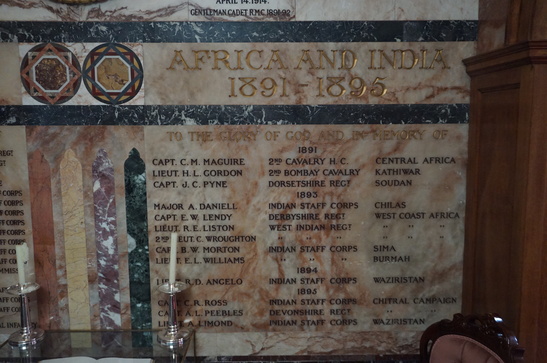 APRIL 14.1914.
GENTLEMAN CADET R.M.C. 1891-92
AFRICA AND INDIA
1891-1895
TO THE GLORY OF GOD AND IN MEMORY OF
1891
CAPT. C. M. MAGUIRE 2ND CAVALRY H. C. CENTRAL AFRICA
LIEUT. H. L. GORDON 2ND BOMBAY CAVALRY KATHIWAR
CAPT. J. C. PYNE DORSETSHIRE REGT SOUDAN
1893
MAJOR A. DANIELL INDIAN STAFF CORPS CHILAS
CAPT. E. W. LENDY DERBYSHIRE REGT WEST COAST AFRICA
LIEUT. R. E. LISTON WEST INDIAN REGT " " "
2ND LIEUT C. WROUGHTON " " " " "
CAPT. B. W. MORTON INDIAN STAFF CORPS SIMA
LIEUT. E. L. WILLIAMS " " " BURMAH
1894
R. D. ANGELO INDIAN STAFF CORPS WAZIRISTAN
1895
CAPT. C. R. ROSS INDIAN STAFF CORPS CHITRAL CAMPAIGN
CAPT. A. L. PEEBLES DEVONSHIRE REGT " "
LIMOND INDIAN STAFF CORPS WAZIRISTAN
REGT
CORPS
CORPS
CORPS
CORPS
CORPS
CORPS
CORPS
CORPS
INFANT